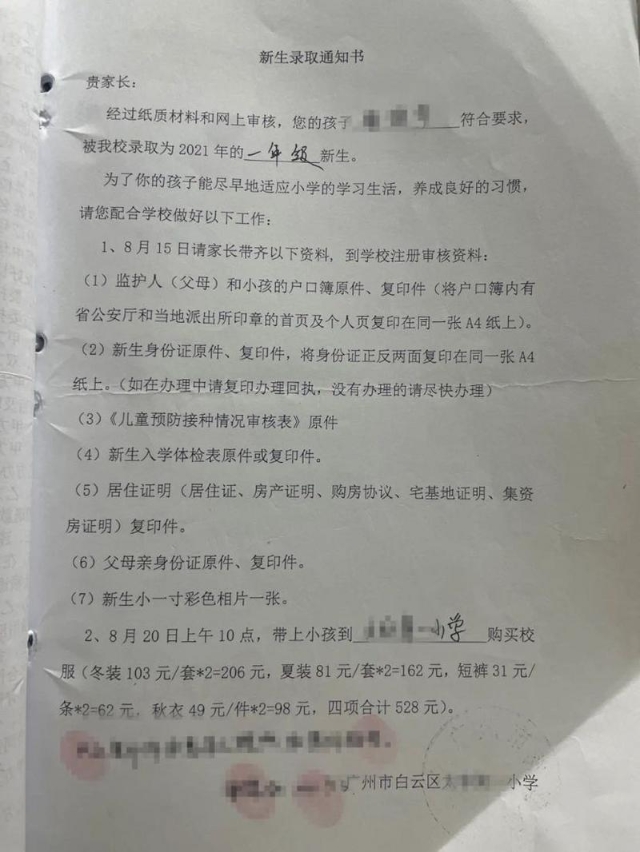 新生录取通知书
贵家长：
经过纸质材料和网上审核，您的孩子 符合要求，
被我校录取为 2021 年的一年级新生。
为了你的孩子能尽早地适应小学的学习生活，养成良好的习惯，
请您配合学校做好以下工作：
1、8 月 15 日请家长带齐以下资料，到学校注册审核资料：
（1）监护人（父母）和小孩的户口簿原件、复印件（将户口簿内有
省公安厅和当地派出所印章的首页及个人页复印在同一张 A4 纸上）。
（2）新生身份证原件、复印件，将身份证正反两面复印在同一张 A4
纸上。（如在办理中请复印办理回执，没有办理的请尽快办理）
（3）《儿童预防接种情况审核表》原件
（4）新生入学体检表原件或复印件。
（5）居住证明（居住证、房产证明、购房协议、宅基地证明、集资
房证明）复印件。
（6）父母亲身份证原件、复印件。
（7）新生小一寸彩色相片一张。
2、8 月 20 日上午 10 点，带上小孩到 小学 购买校
服（冬装 103 元/套*2=206 元，夏装 81 元/套*2=162 元，短裤 31 元/
条*2=62 元，秋衣 49 元/件*2=98 元，四项合计 528 元）。
广州市白云区 小学